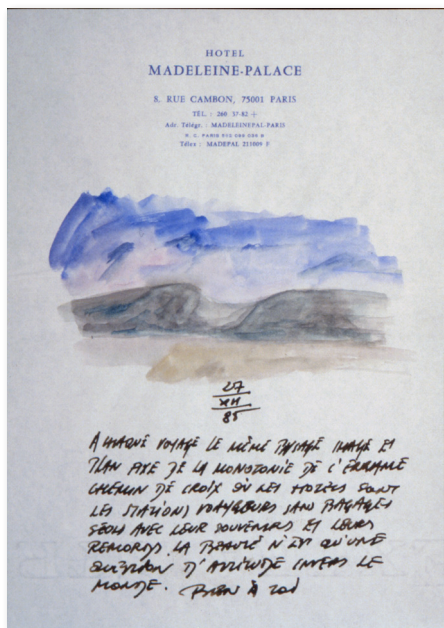 HOTEL
MADELEINE-PALACE
8. RUE CAMBON, 75001 PARIS
TÉL. : 260 37-82 +
Adr. Télégr. : MADELEINEPAL-PARIS
R. C. PARIS
Télex : MADEPAL 211009 F
27
XII
85
A CHAQUE VOYAGE LE MÊME PAYSAGE IMAGE ET
PLAN FIXE DE LA MONOTONIE DE L'ERRANCE
CHEMIN DE CROIX OÙ LES HOTELS SONT
LES STATIONS VOYAGEURS SANS BAGAGES
SEULS AVEC LEUR SOUVENIRS ET LEURS
REMORDS LA BEAUTÉ N'EST QU'UNE
QUESTION D'ATTITUDE ENVERS LE
MONDE. BIEN À TOI